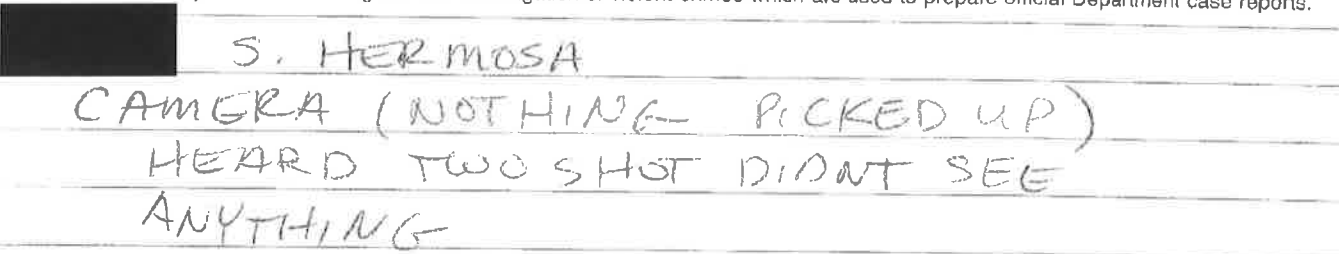 violent crimes which are used to prepare official Department case reports.
S. HERMOSA
CAMERA (NOTHING PICKED UP)
HEARD TWO SHOT DIDNT SEE
ANYTHING